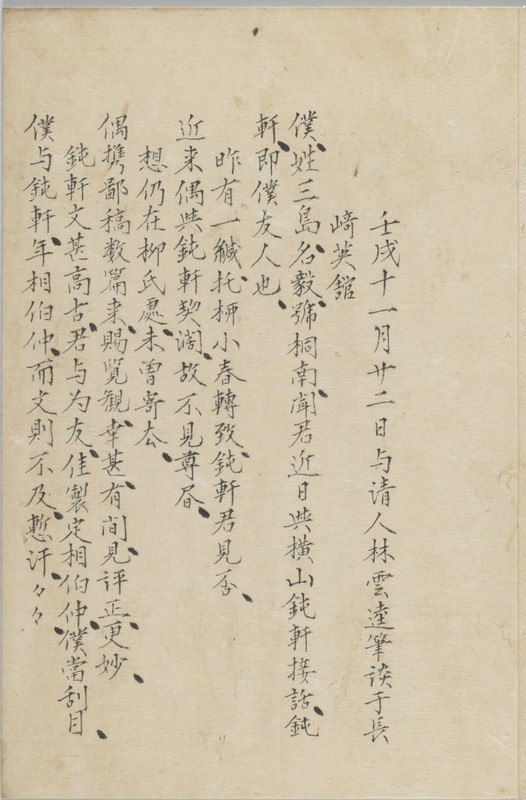 壬戌十一月廿二日与请人林雲逵筆談于長
﨑英舘
僕姓三島名毅號桐南聞君近日與横山鈍軒接話鈍
軒即僕友人也
昨有一緘托栁小春轉致鈍軒君見否
近来偶與鈍軒契濶故不見尊昬
想仍在栁氏處未曽寄厺
偶携鄙稿数篇来賜覧観幸甚有間見評正更妙
鈍軒文甚高古君与为友佳製定相伯仲僕當刮目
僕与鈍軒年相伯仲而文則不及慙汗々々